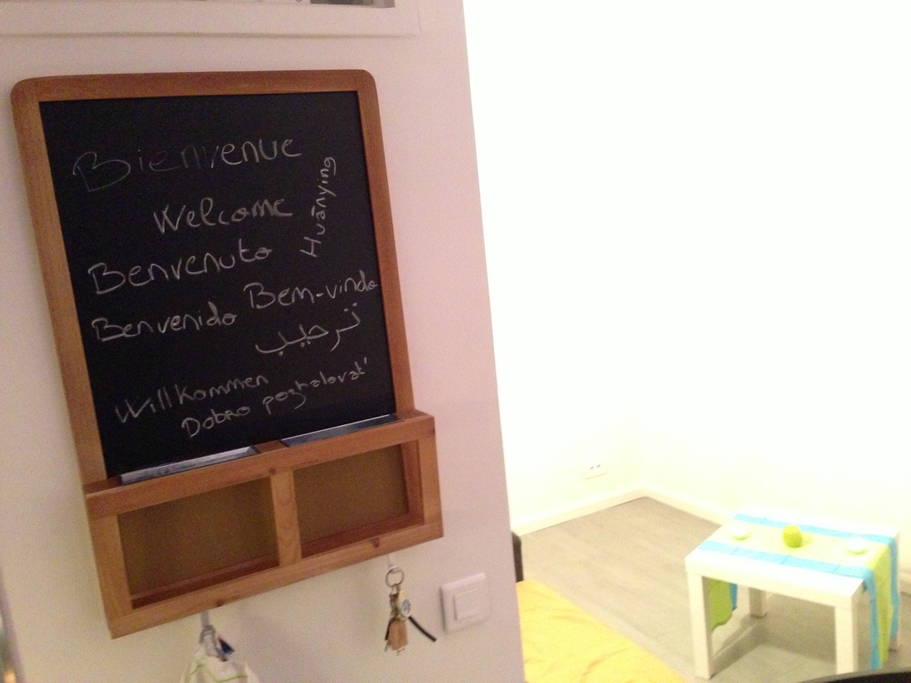 Bienvenue
Welcome
Huānying
Benvenuto
Benvenido
Bem-vindo
ترحيب
Willkommen
Dobro pozhalovat'